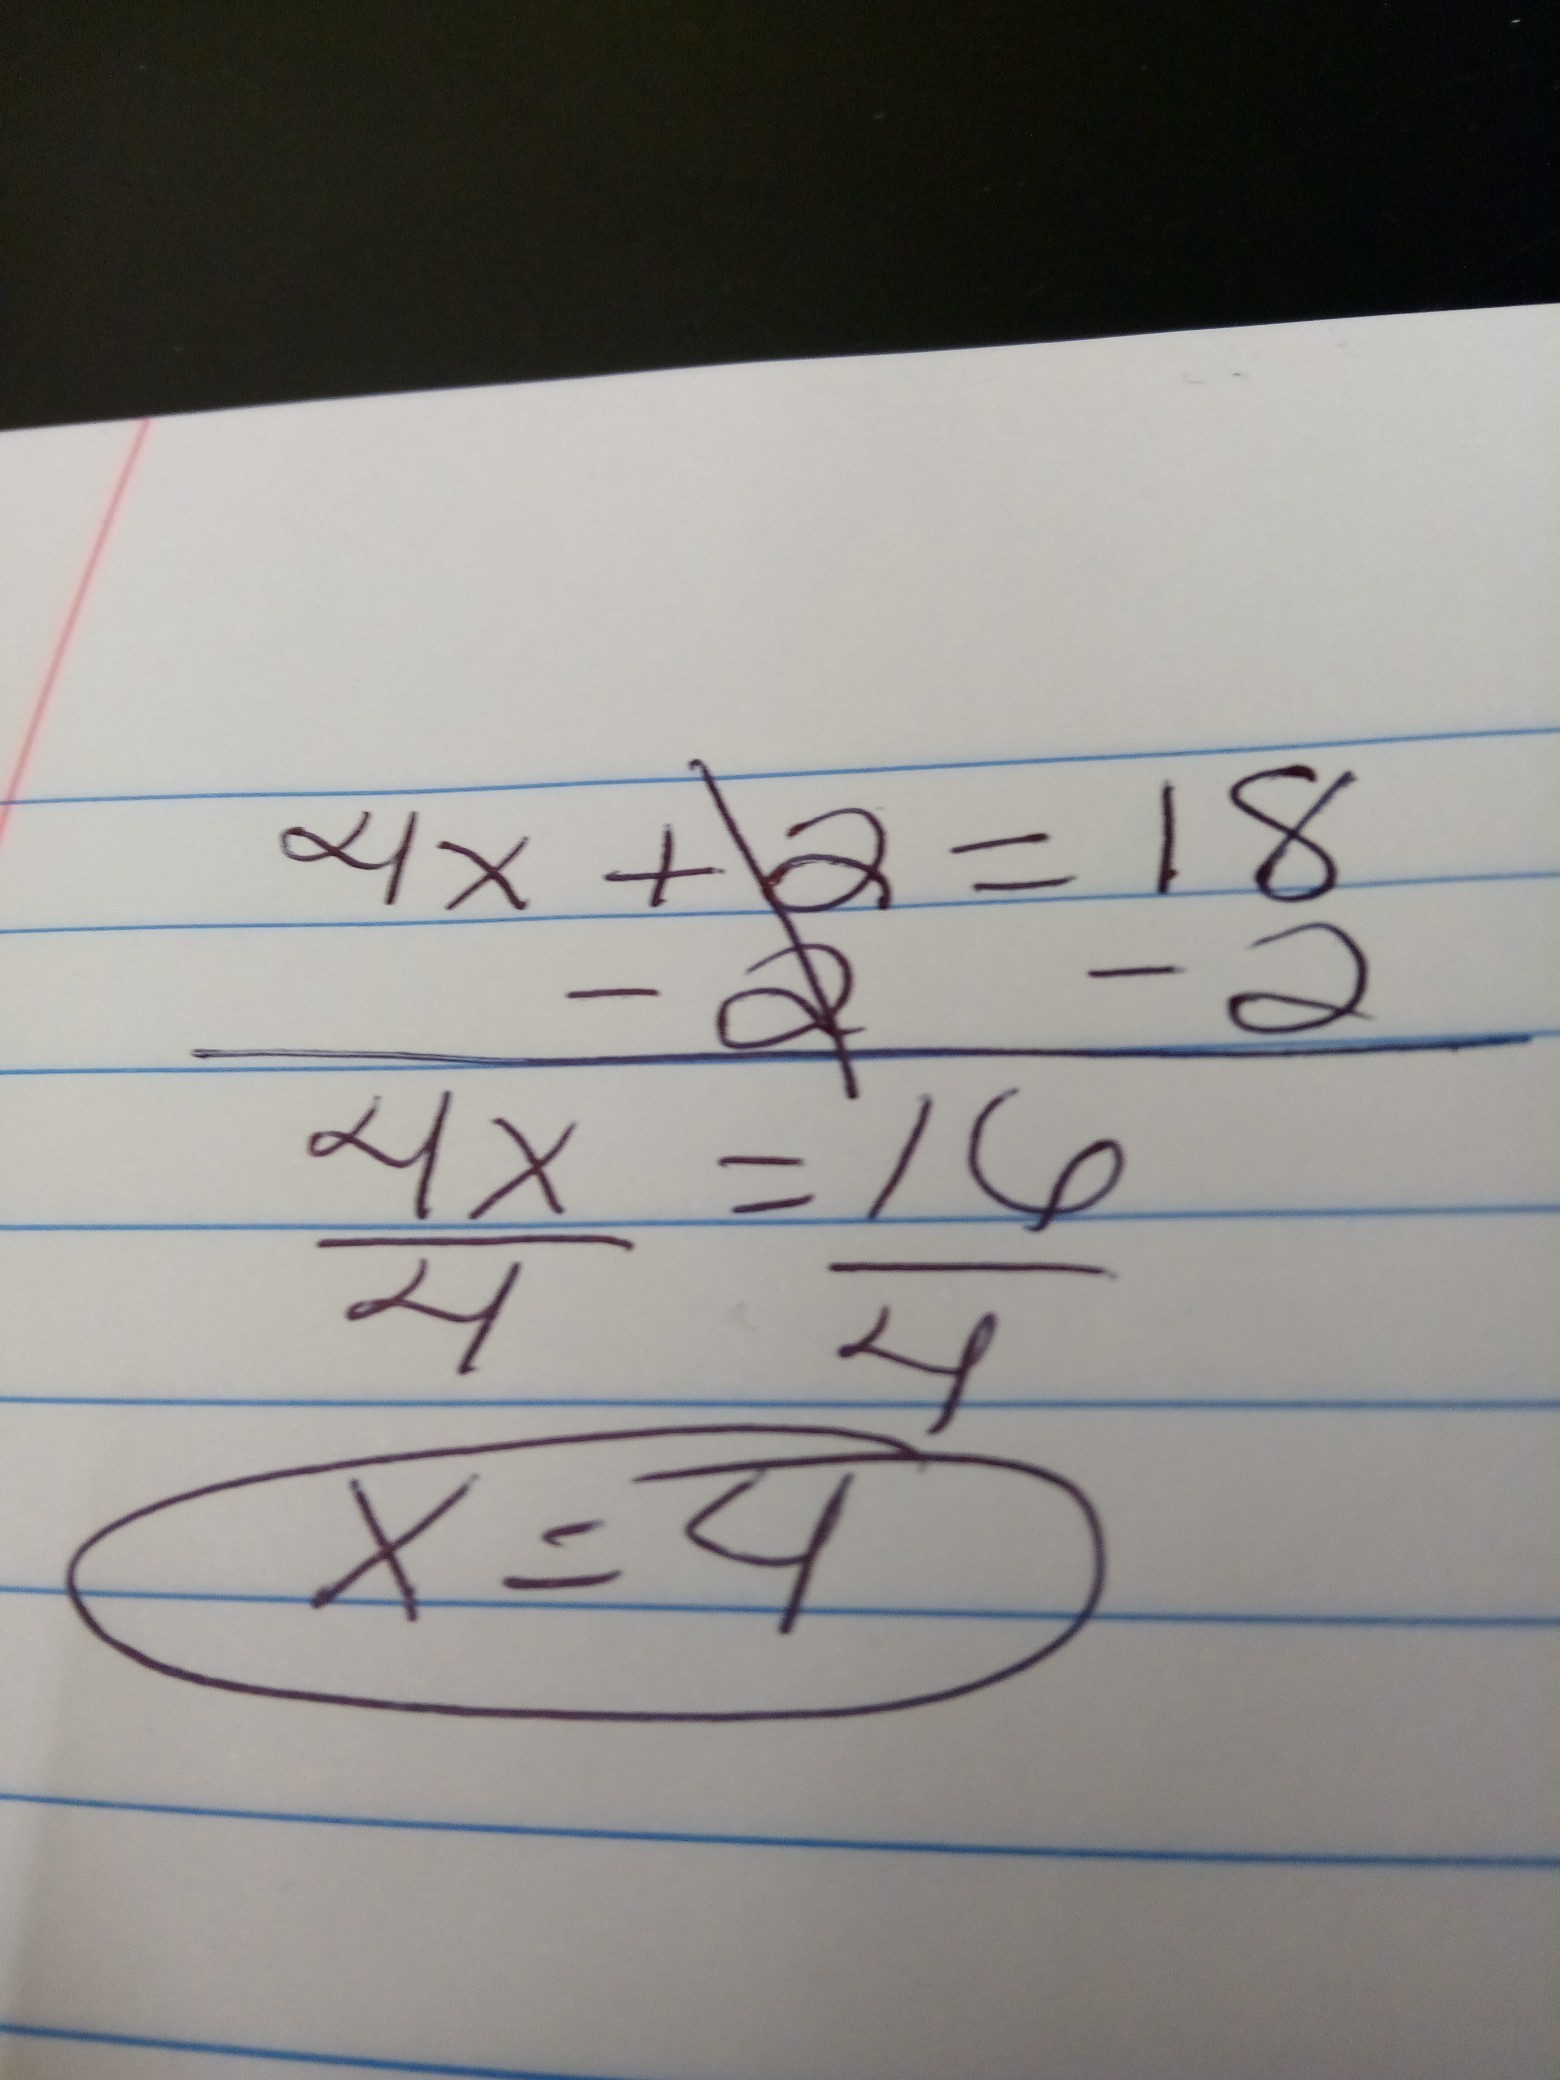 4x + 2 = 18
- 2 - 2
4x = 16
4 4
x = 4